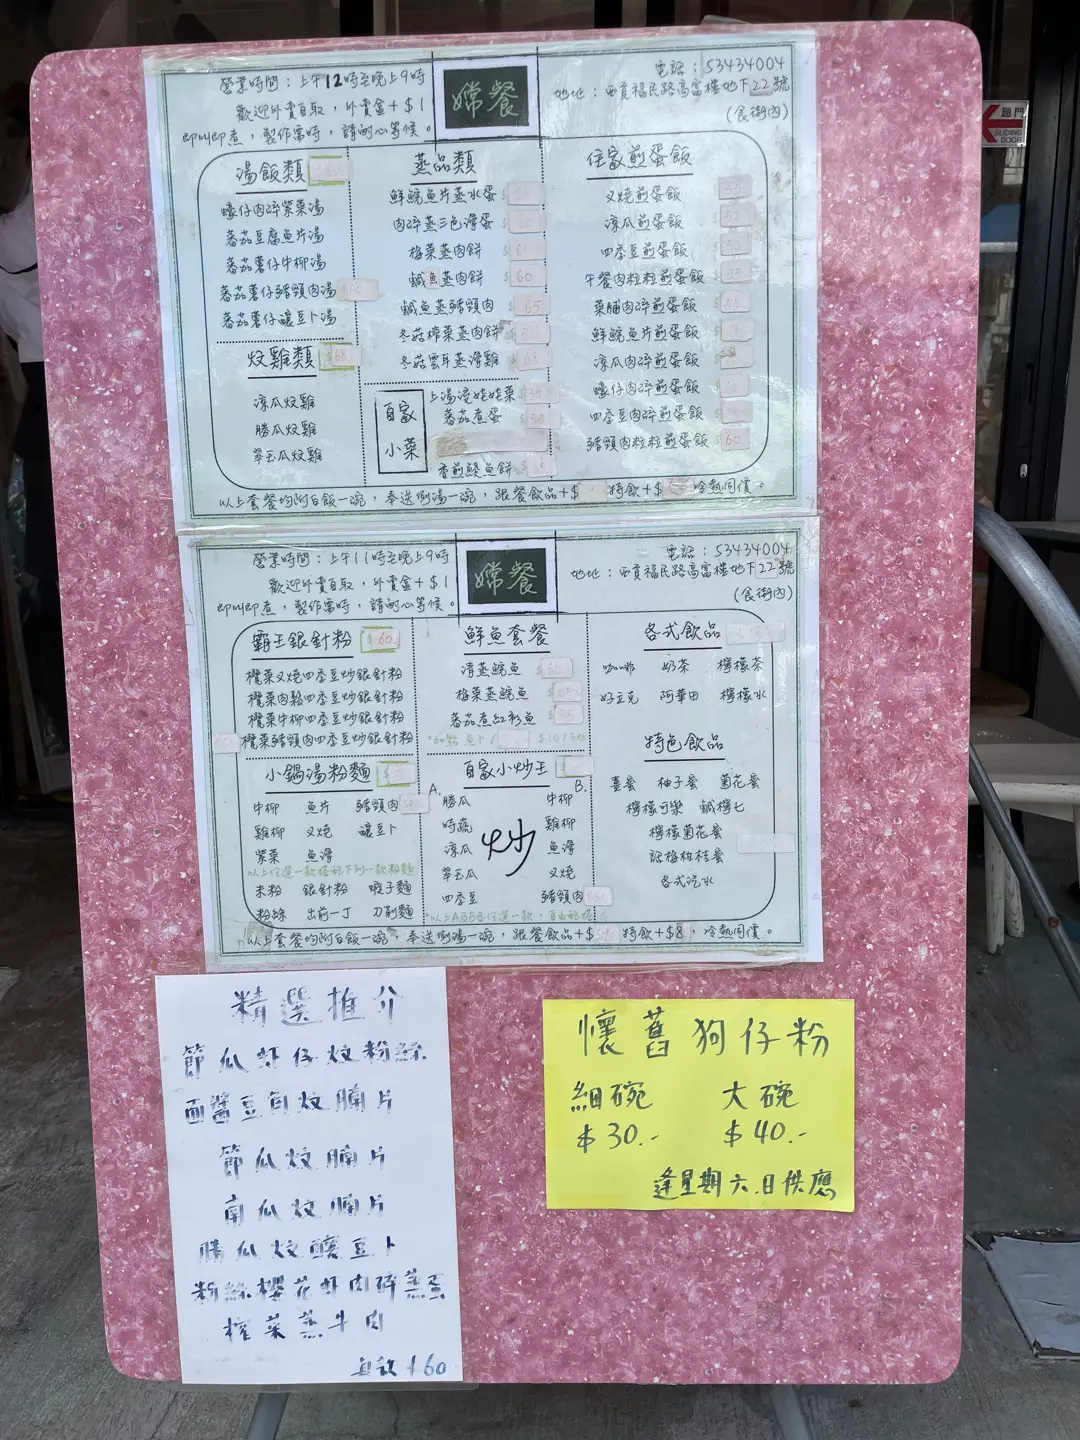 營業時間：上午12時至晚上9時
歡迎外賣自取，外賣盒+$1
即叫即煮，製作需時，請耐心等候。
嫦餐
電話：53434004
地址：西貢福民路高富樓地下22號
(食街內)
湯飯類
蠔仔肉碎紫菜湯
蕃茄豆腐魚片湯
蕃茄薯仔牛柳湯
蕃茄薯仔豬頸肉湯
蕃茄薯仔釀豆卜湯
炆雞類 $68
涼瓜炆雞
勝瓜炆雞
翠玉瓜炆雞
蒸品類
鮮鯇魚片蒸水蛋
肉碎蒸三色滑蛋
梅菜蒸肉餅
鹹魚蒸肉餅 $60
鹹魚蒸豬頸肉 $65
冬菇榨菜蒸肉餅
冬菇雲耳蒸滑雞 $68
自家小菜
上湯浸娃娃菜
蕃茄煮蛋
香煎鯪魚餅
住家煎蛋飯
叉燒煎蛋飯
涼瓜煎蛋飯
四季豆煎蛋飯
午餐肉粒粒煎蛋飯
菜脯肉碎煎蛋飯
鮮鯇魚片煎蛋飯
涼瓜肉碎煎蛋飯
蠔仔肉碎煎蛋飯
四季豆肉碎煎蛋飯
豬頸肉粒粒煎蛋飯 $60
以上套餐均附白飯一碗，奉送例湯一碗，跟餐飲品+$ 特飲+$ 冷熱同價。
營業時間：上午11時至晚上9時
歡迎外賣自取，外賣盒+$1
即叫即煮，製作需時，請耐心等候。
嫦餐
電話：53434004
地址：西貢福民路高富樓地下22號
(食街內)
霸王銀針粉 $60
欖菜叉燒四季豆炒銀針粉
欖菜肉鬆四季豆炒銀針粉
欖菜牛柳四季豆炒銀針粉
欖菜豬頸肉四季豆炒銀針粉
小鍋湯粉麵
牛柳 魚片 豬頸肉
雞柳 叉燒 釀豆卜
紫菜 魚滑
以上任選一款搭配下列一款粉麵
米粉 銀針粉 蝦子麵
粉絲 出前一丁 刀削麵
鮮魚套餐
清蒸鯇魚
梅菜蒸鯇魚
蕃茄煮紅衫魚
自家小炒王
A. B.
勝瓜 牛柳
時蔬 雞柳
涼瓜 炒 魚滑
翠玉瓜 叉燒
四季豆 豬頸肉
*以上A及B各任選一款，自由配搭
各式飲品
咖啡 奶茶 檸檬茶
好立克 阿華田 檸檬水
特色飲品
薑蜜 柚子蜜 菊花蜜
檸檬可樂 鹹檸七
檸檬菊花蜜
話梅柑桔蜜
各式汽水
以上套餐均附白飯一碗，奉送例湯一碗，跟餐飲品+$ 特飲+$8，冷熱同價。
精選推介
節瓜虾仔炆粉絲
面醬豆角炆腩片
節瓜炆腩片
南瓜炆腩片
勝瓜炆釀豆卜
粉絲櫻花虾肉碎蒸蛋
榨菜蒸牛肉
懷舊狗仔粉
細碗 大碗
$30.- $40.-
逢星期六.日供應
趟門
SLIDING DOOR